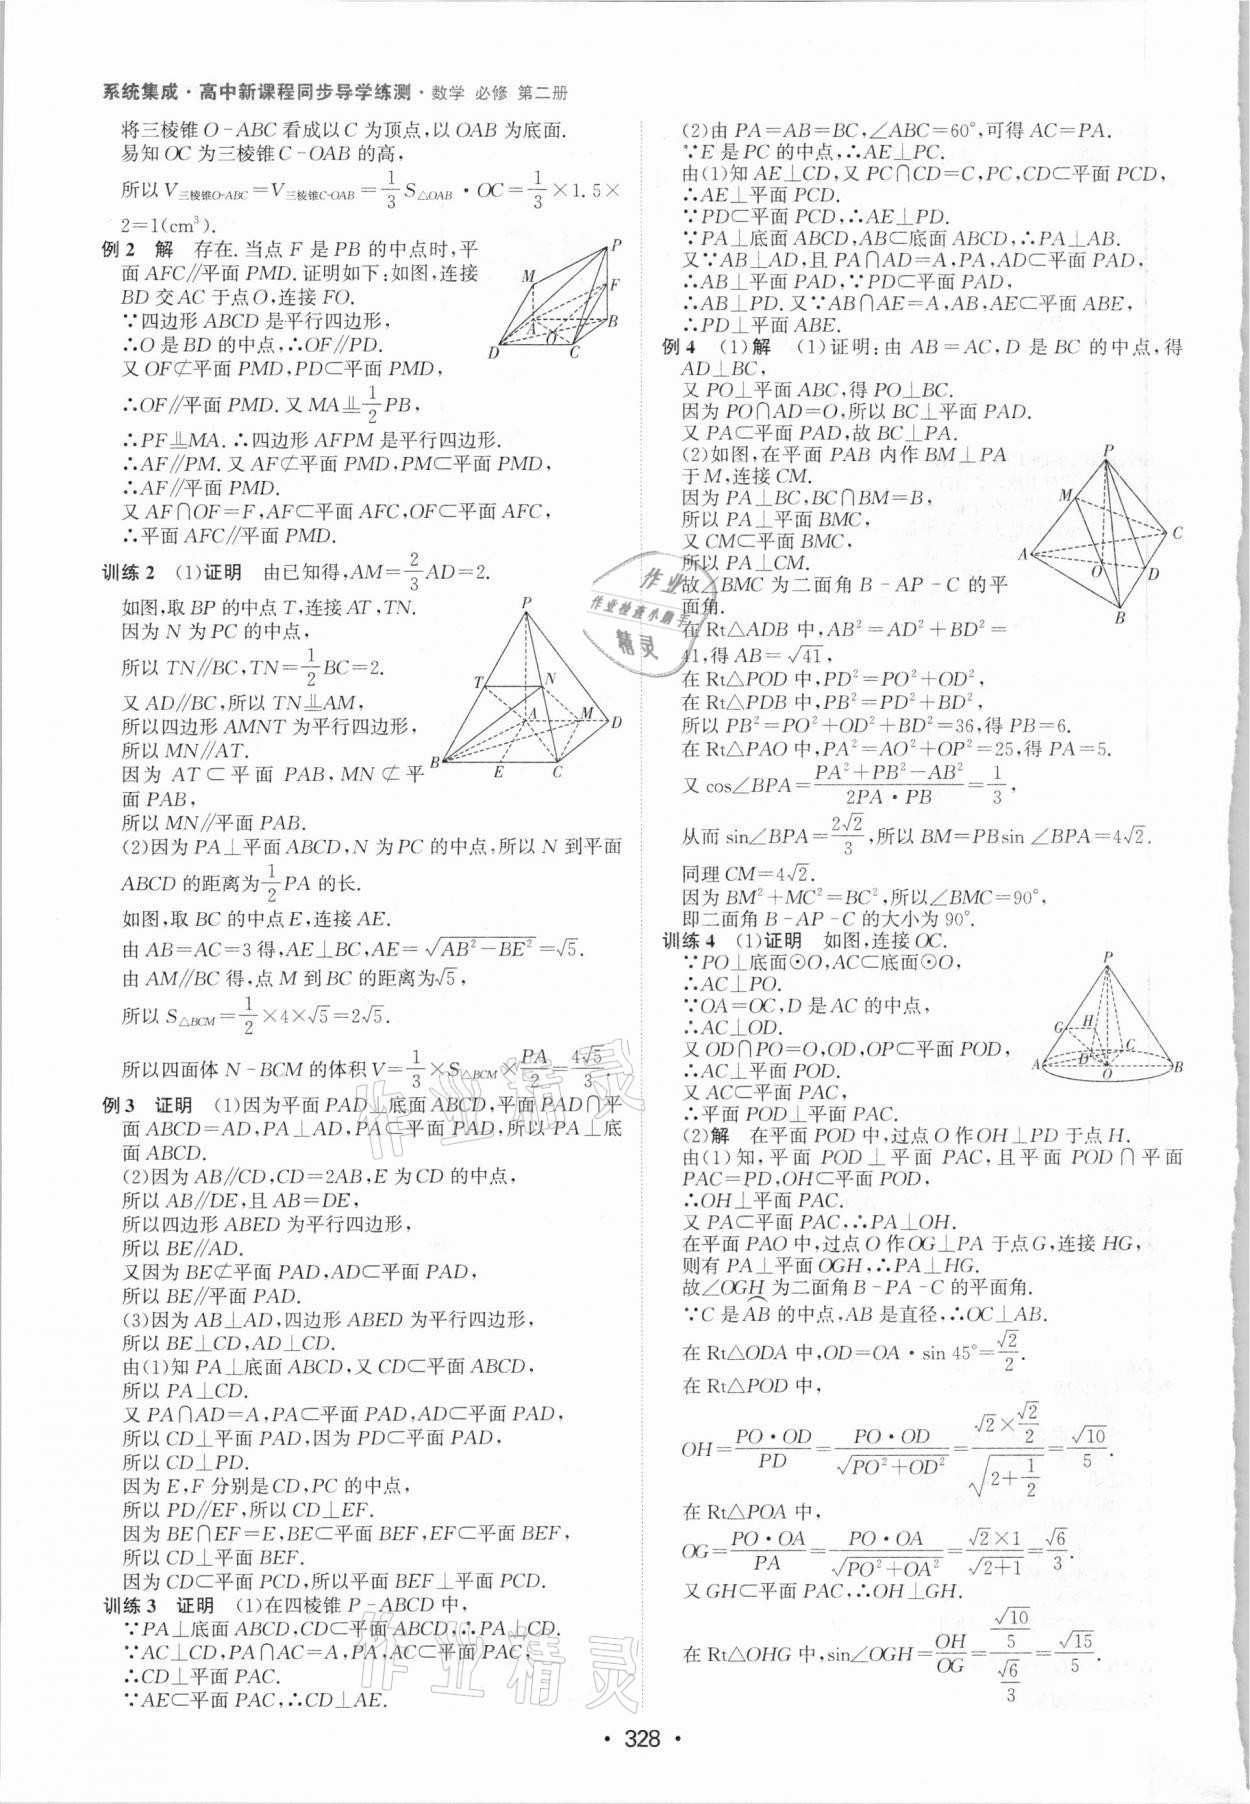 系统集成·高中新课程同步导学练测·数学 必修 第二册
将三棱锥O-ABC看成以C为顶点,以OAB为底面.
易知OC为三棱锥C-OAB的高,
所以V三棱锥O-ABC=V三棱锥C-OAB=1/3 S△OAB·OC=1/3×1.5×
2=1(cm³).
例2 解 存在.当点F是PB的中点时,平
面AFC∥平面PMD.证明如下:如图,连接
BD交AC于点O,连接FO.
∵四边形ABCD是平行四边形,
∴O是BD的中点,∴OF∥PD.
又OF⊄平面PMD,PD⊂平面PMD,
∴OF∥平面PMD.又MA⊥∥1/2 PB,
∴PF⊥∥MA.∴四边形AFPM是平行四边形.
∴AF∥PM.又AF⊄平面PMD,PM⊂平面PMD,
∴AF∥平面PMD.
又AF∩OF=F,AF⊂平面AFC,OF⊂平面AFC,
∴平面AFC∥平面PMD.
P
M
F
A
B
O
D
C
训练2 (1)证明 由已知得,AM=2/3 AD=2.
如图,取BP的中点T,连接AT,TN.
因为N为PC的中点,
所以TN∥BC,TN=1/2 BC=2.
又AD∥BC,所以TN⊥∥AM,
所以四边形AMNT为平行四边形,
所以MN∥AT.
因为AT⊂平面PAB,MN⊄平
面PAB,
所以MN∥平面PAB.
P
T
N
A
M
D
B
E
C
(2)因为PA⊥平面ABCD,N为PC的中点,所以N到平面
ABCD的距离为1/2 PA的长.
如图,取BC的中点E,连接AE.
由AB=AC=3得,AE⊥BC,AE=√(AB²-BE²)=√5.
由AM∥BC得,点M到BC的距离为√5,
所以S△BCM=1/2×4×√5=2√5.
所以四面体N-BCM的体积V=1/3×S△BCM×PA/2=4√5/3.
例3 证明 (1)因为平面PAD⊥底面ABCD,平面PAD∩平
面ABCD=AD,PA⊥AD,PA⊂平面PAD,所以PA⊥底
面ABCD.
(2)因为AB∥CD,CD=2AB,E为CD的中点,
所以AB∥DE,且AB=DE,
所以四边形ABED为平行四边形,
所以BE∥AD.
又因为BE⊄平面PAD,AD⊂平面PAD,
所以BE∥平面PAD.
(3)因为AB⊥AD,四边形ABED为平行四边形,
所以BE⊥CD,AD⊥CD.
由(1)知PA⊥底面ABCD,又CD⊂平面ABCD,
所以PA⊥CD.
又PA∩AD=A,PA⊂平面PAD,AD⊂平面PAD,
所以CD⊥平面PAD,因为PD⊂平面PAD,
所以CD⊥PD.
因为E,F分别是CD,PC的中点,
所以PD∥EF,所以CD⊥EF.
因为BE∩EF=E,BE⊂平面BEF,EF⊂平面BEF,
所以CD⊥平面BEF.
因为CD⊂平面PCD,所以平面BEF⊥平面PCD.
训练3 证明 (1)在四棱锥P-ABCD中,
∵PA⊥底面ABCD,CD⊂平面ABCD,∴PA⊥CD.
∵AC⊥CD,PA∩AC=A,PA,AC⊂平面PAC,
∴CD⊥平面PAC.
∵AE⊂平面PAC,∴CD⊥AE.
(2)由PA=AB=BC,∠ABC=60°,可得AC=PA.
∵E是PC的中点,∴AE⊥PC.
由(1)知AE⊥CD,又PC∩CD=C,PC,CD⊂平面PCD,
∴AE⊥平面PCD.
∵PD⊂平面PCD,∴AE⊥PD.
∵PA⊥底面ABCD,AB⊂底面ABCD,∴PA⊥AB.
又∵AB⊥AD,且PA∩AD=A,PA,AD⊂平面PAD,
∴AB⊥平面PAD,∵PD⊂平面PAD,
∴AB⊥PD.又∵AB∩AE=A,AB,AE⊂平面ABE,
∴PD⊥平面ABE.
例4 (1)解 (1)证明:由AB=AC,D是BC的中点,得
AD⊥BC,
又PO⊥平面ABC,得PO⊥BC.
因为PO∩AD=O,所以BC⊥平面PAD.
又PA⊂平面PAD,故BC⊥PA.
(2)如图,在平面PAB内作BM⊥PA
于M,连接CM.
因为PA⊥BC,BC∩BM=B,
所以PA⊥平面BMC,
又CM⊂平面BMC,
所以PA⊥CM.
故∠BMC为二面角B-AP-C的平
面角.
P
M
C
A
O
D
B
在Rt△ADB中,AB²=AD²+BD²=
41,得AB=√41,
在Rt△POD中,PD²=PO²+OD²,
在Rt△PDB中,PB²=PD²+BD²,
所以PB²=PO²+OD²+BD²=36,得PB=6.
在Rt△PAO中,PA²=AO²+OP²=25,得PA=5.
又cos∠BPA=(PA²+PB²-AB²)/(2PA·PB)=1/3,
从而sin∠BPA=2√2/3,所以BM=PBsin∠BPA=4√2.
同理CM=4√2.
因为BM²+MC²=BC²,所以∠BMC=90°,
即二面角B-AP-C的大小为90°.
训练4 (1)证明 如图,连接OC.
∵PO⊥底面⊙O,AC⊂底面⊙O,
∴AC⊥PO.
∵OA=OC,D是AC的中点,
∴AC⊥OD.
又OD∩PO=O,OD,OP⊂平面POD,
∴AC⊥平面POD.
又AC⊂平面PAC,
∴平面POD⊥平面PAC.
P
G
H
C
D
A
O
B
(2)解 在平面POD中,过点O作OH⊥PD于点H.
由(1)知,平面POD⊥平面PAC,且平面POD∩平面
PAC=PD,OH⊂平面POD,
∴OH⊥平面PAC.
又PA⊂平面PAC,∴PA⊥OH.
在平面PAO中,过点O作OG⊥PA于点G,连接HG,
则有PA⊥平面OGH,∴PA⊥HG.
故∠OGH为二面角B-PA-C的平面角.
∵C是⌒AB的中点,AB是直径,∴OC⊥AB.
在Rt△ODA中,OD=OA·sin 45°=√2/2.
在Rt△POD中,
OH=(PO·OD)/PD=(PO·OD)/√(PO²+OD²)=(√2×√2/2)/√(2+1/2)=√10/5.
在Rt△POA中,
OG=(PO·OA)/PA=(PO·OA)/√(PO²+OA²)=(√2×1)/√(2+1)=√6/3.
又GH⊂平面PAC,∴OH⊥GH.
在Rt△OHG中,sin∠OGH=OH/OG=(√10/5)/(√6/3)=√15/5.
作业
作业检查小题手
精灵
作业精灵
作业精灵
·328·